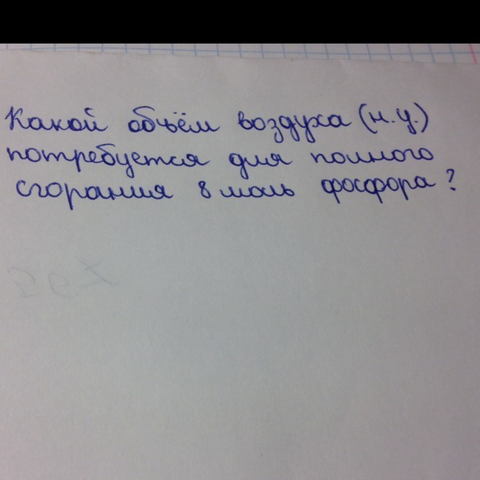 Какой объём воздуха (н.у.)
потребуется для полного
сгорания 8 моль фосфора?